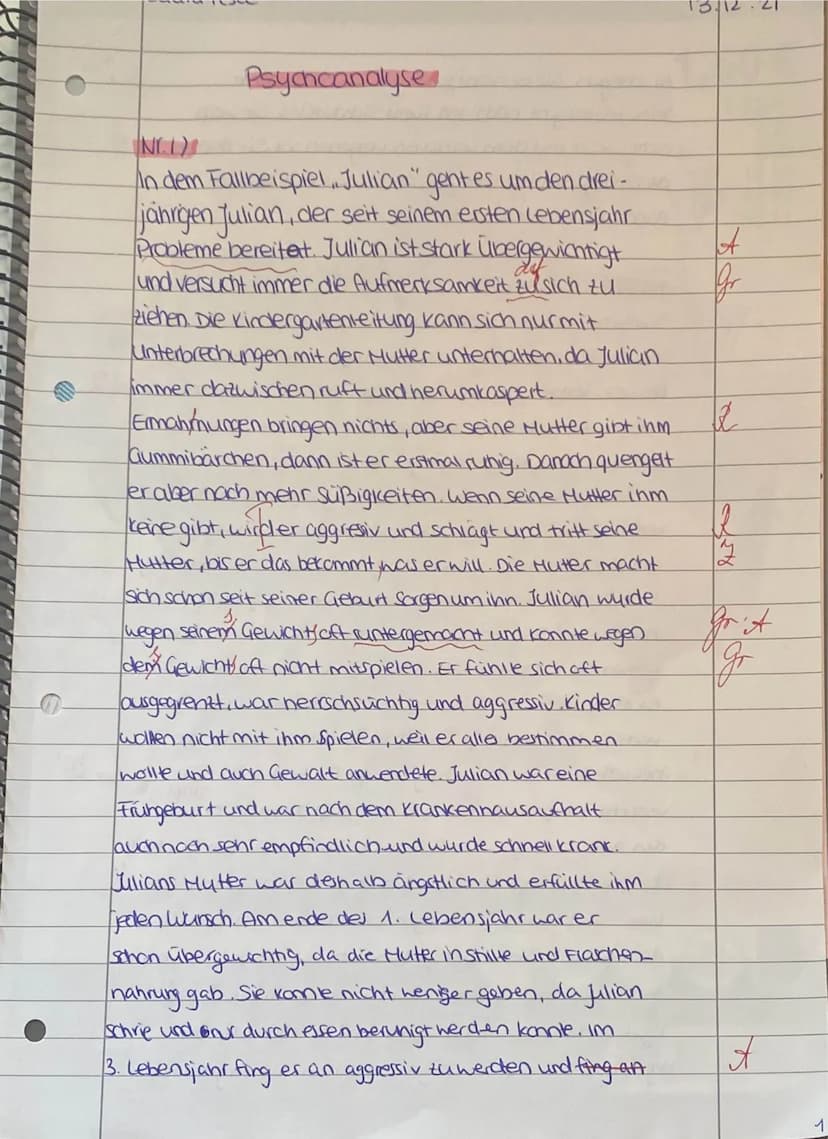 13.12.21
Psychoanalyse
Nr.1)
In dem Fallbeispiel „Julian" geht es um den drei-
jährigen Julian, der seit seinem ersten Lebensjahr
Probleme bereitet. Julian ist stark Übergewichtigt A
auf
und versucht immer die Aufmerksamkeit zu sich zu gr
ziehen. Die Kindergartenleitung kann sich nur mit
Unterbrechungen mit der Mutter unterhalten, da Julian
immer dazwischen ruft und herumkaspert.
Ermahnungen bringen nichts, aber seine Mutter gibt ihm R
Gummibärchen, dann ist er erstmal ruhig. Danach quengelt
er aber nach mehr Süßigkeiten. Wenn seine Mutter ihm
keine gibt, wird er aggresiv und schlägt und tritt seine R
Mutter, bis er das bekommt, was er will. Die Mutter macht Z
sich schon seit seiner Geburt Sorgen um ihn. Julian wurde
wegen seinem Gewicht oft runtergemacht und konnte wegen gr; A
dem Gewicht oft nicht mitspielen. Er fühlte sich oft gr
ausgegrenzt, war herrschsüchtig und aggressiv. Kinder
wollen nicht mit ihm spielen, weil er alle bestimmen
wollte und auch Gewalt anwendete. Julian war eine
Frühgeburt und war nach dem Krankenhausaufhalt
auch noch sehr empfindlich und wurde schnell krank.
Julians Mutter war deshalb ängstlich und erfüllte ihm
jeden Wunsch. Am ende des 1. Lebensjahr war er
schon übergewichtig, da die Mutter in stillte und Flaschen-
nahrung gab. Sie konnte nicht weniger geben, da Julian
schrie und nur durch essen beruhigt werden konnte. Im
3. Lebensjahr fing er an aggressiv zu werden und fing an A
1